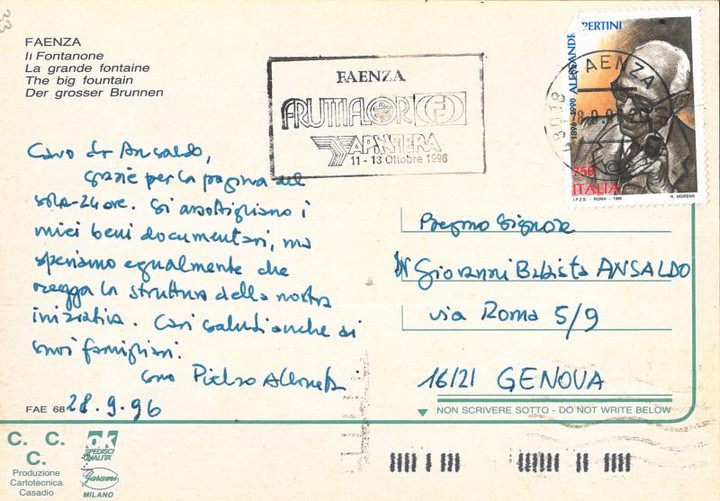 FAENZA
Il Fontanone
La grande fontaine
The big fountain
Der grosser Brunnen
FAENZA
FRUTTIFLOR
11 - 13 Ottobre 1996
ALESSANDRO PERTINI
1896-1990
750
ITALIA
I.P.Z.S. - ROMA - 1996
R. MORENA
FAENZA
Caro dr Ansaldo,
grazie per la pagina del
sole-24 ore. Si assottigliano i
miei beni documentari, ma
speriamo egualmente che
regga la struttura della nostra
iniziativa. Cari saluti anche ai
suoi famigliari.
suo Pietro
28.9.96
FAE 68
Pregmo Signore
Dr Giovanni Battista ANSALDO
via Roma 5/9
16121 GENOVA
NON SCRIVERE SOTTO - DO NOT WRITE BELOW
C. C. C.
Produzione
Cartotecnica
Casadio
ok
SPEDISCI
QUALITA'
Garami
MILANO